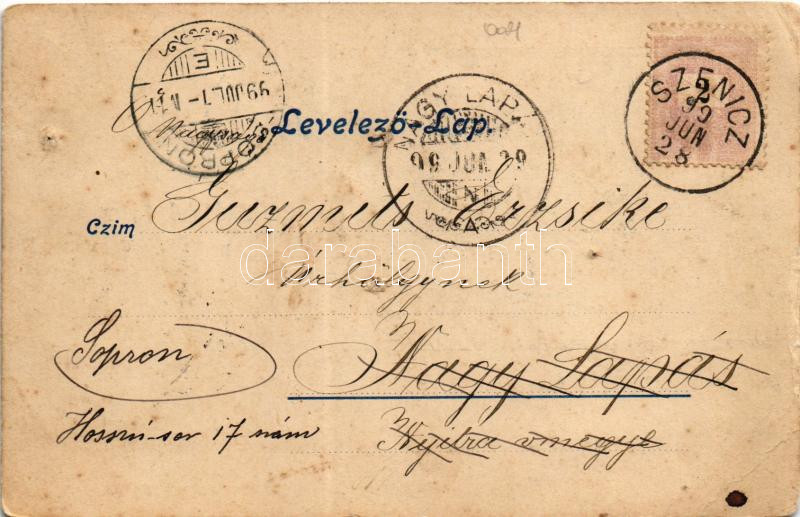 SOPRON
99 JUL. 1
E
NAGY LAPÁ
99 JUN 29
N
SZENICZ
99
JUN
28
2
Levelező-Lap.
Czim
Guzmits Erzsike
Úrhölgynek
darabanth
Sopron
Nagy Lapás
Hosszú-sor 17 szám
Nyitra vmegye